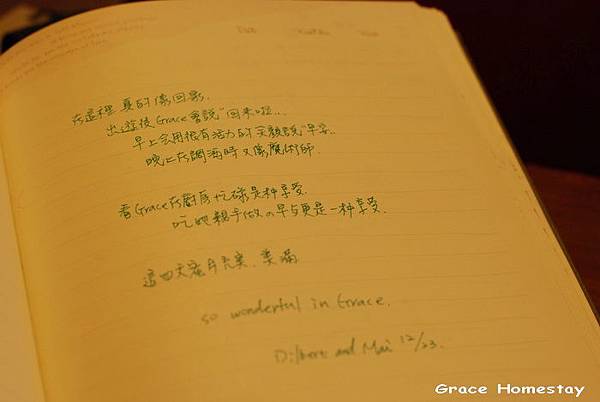 在這裡真的像回家.
出遊後Grace會說"回來啦...
早上会用很有活力的笑顏說"早安..
晚上在調酒時又像魔術師.
看Grace在廚房忙碌是种享受.
吃她親手做の早与更是一种享受.
這四天蜜月充實、美滿
so wonderful in Grace.
Dilbert and Mai 12/23.
Grace Homestay